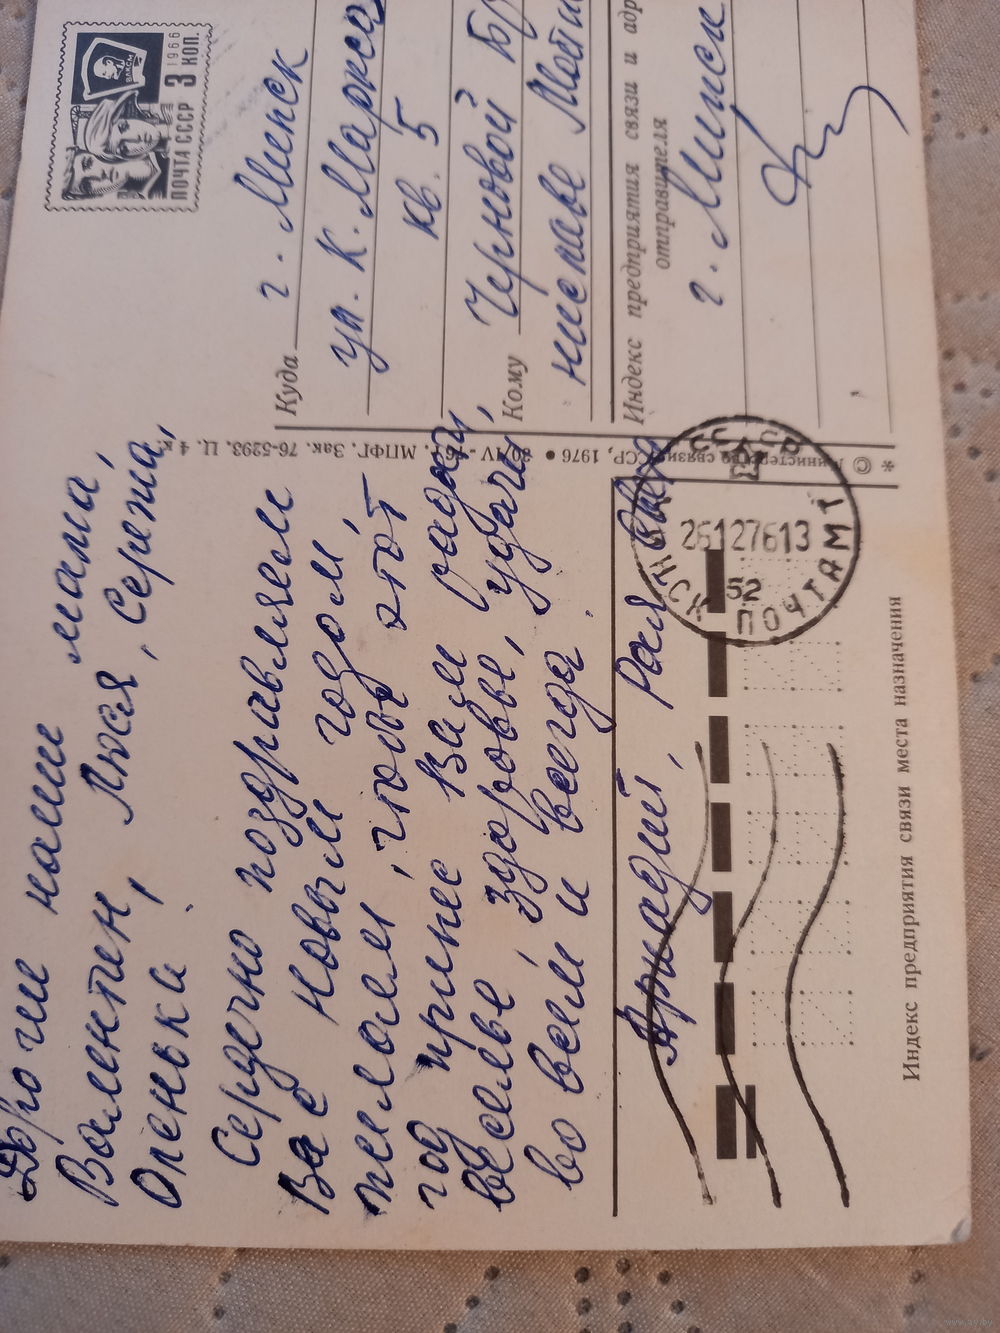 Дорогие наши мама,
Валентин, Люся, Сережа,
Оленька
Сердечно поздравляем
Вас с Новым годом
желаем, чтобы этот
год принес Вам радость,
веселье, здоровье, удачу,
во всем и всегда.
Аркадий, Рая
ПОЧТА СССР 3 КОП.
1966
ВЛКСМ
Куда г. Минск
ул. К. Маркса
кв. 5
Кому Черновой
Индекс предприятия связи и адр
отправителя
г. Минск
© Министерство связи СССР, 1976 • МПФГ. Зак. 76-5293. Ц. 4 к.
МИНСК
26127613
52
ПОЧТАМТ
Индекс предприятия связи места назначения
www.ay.by